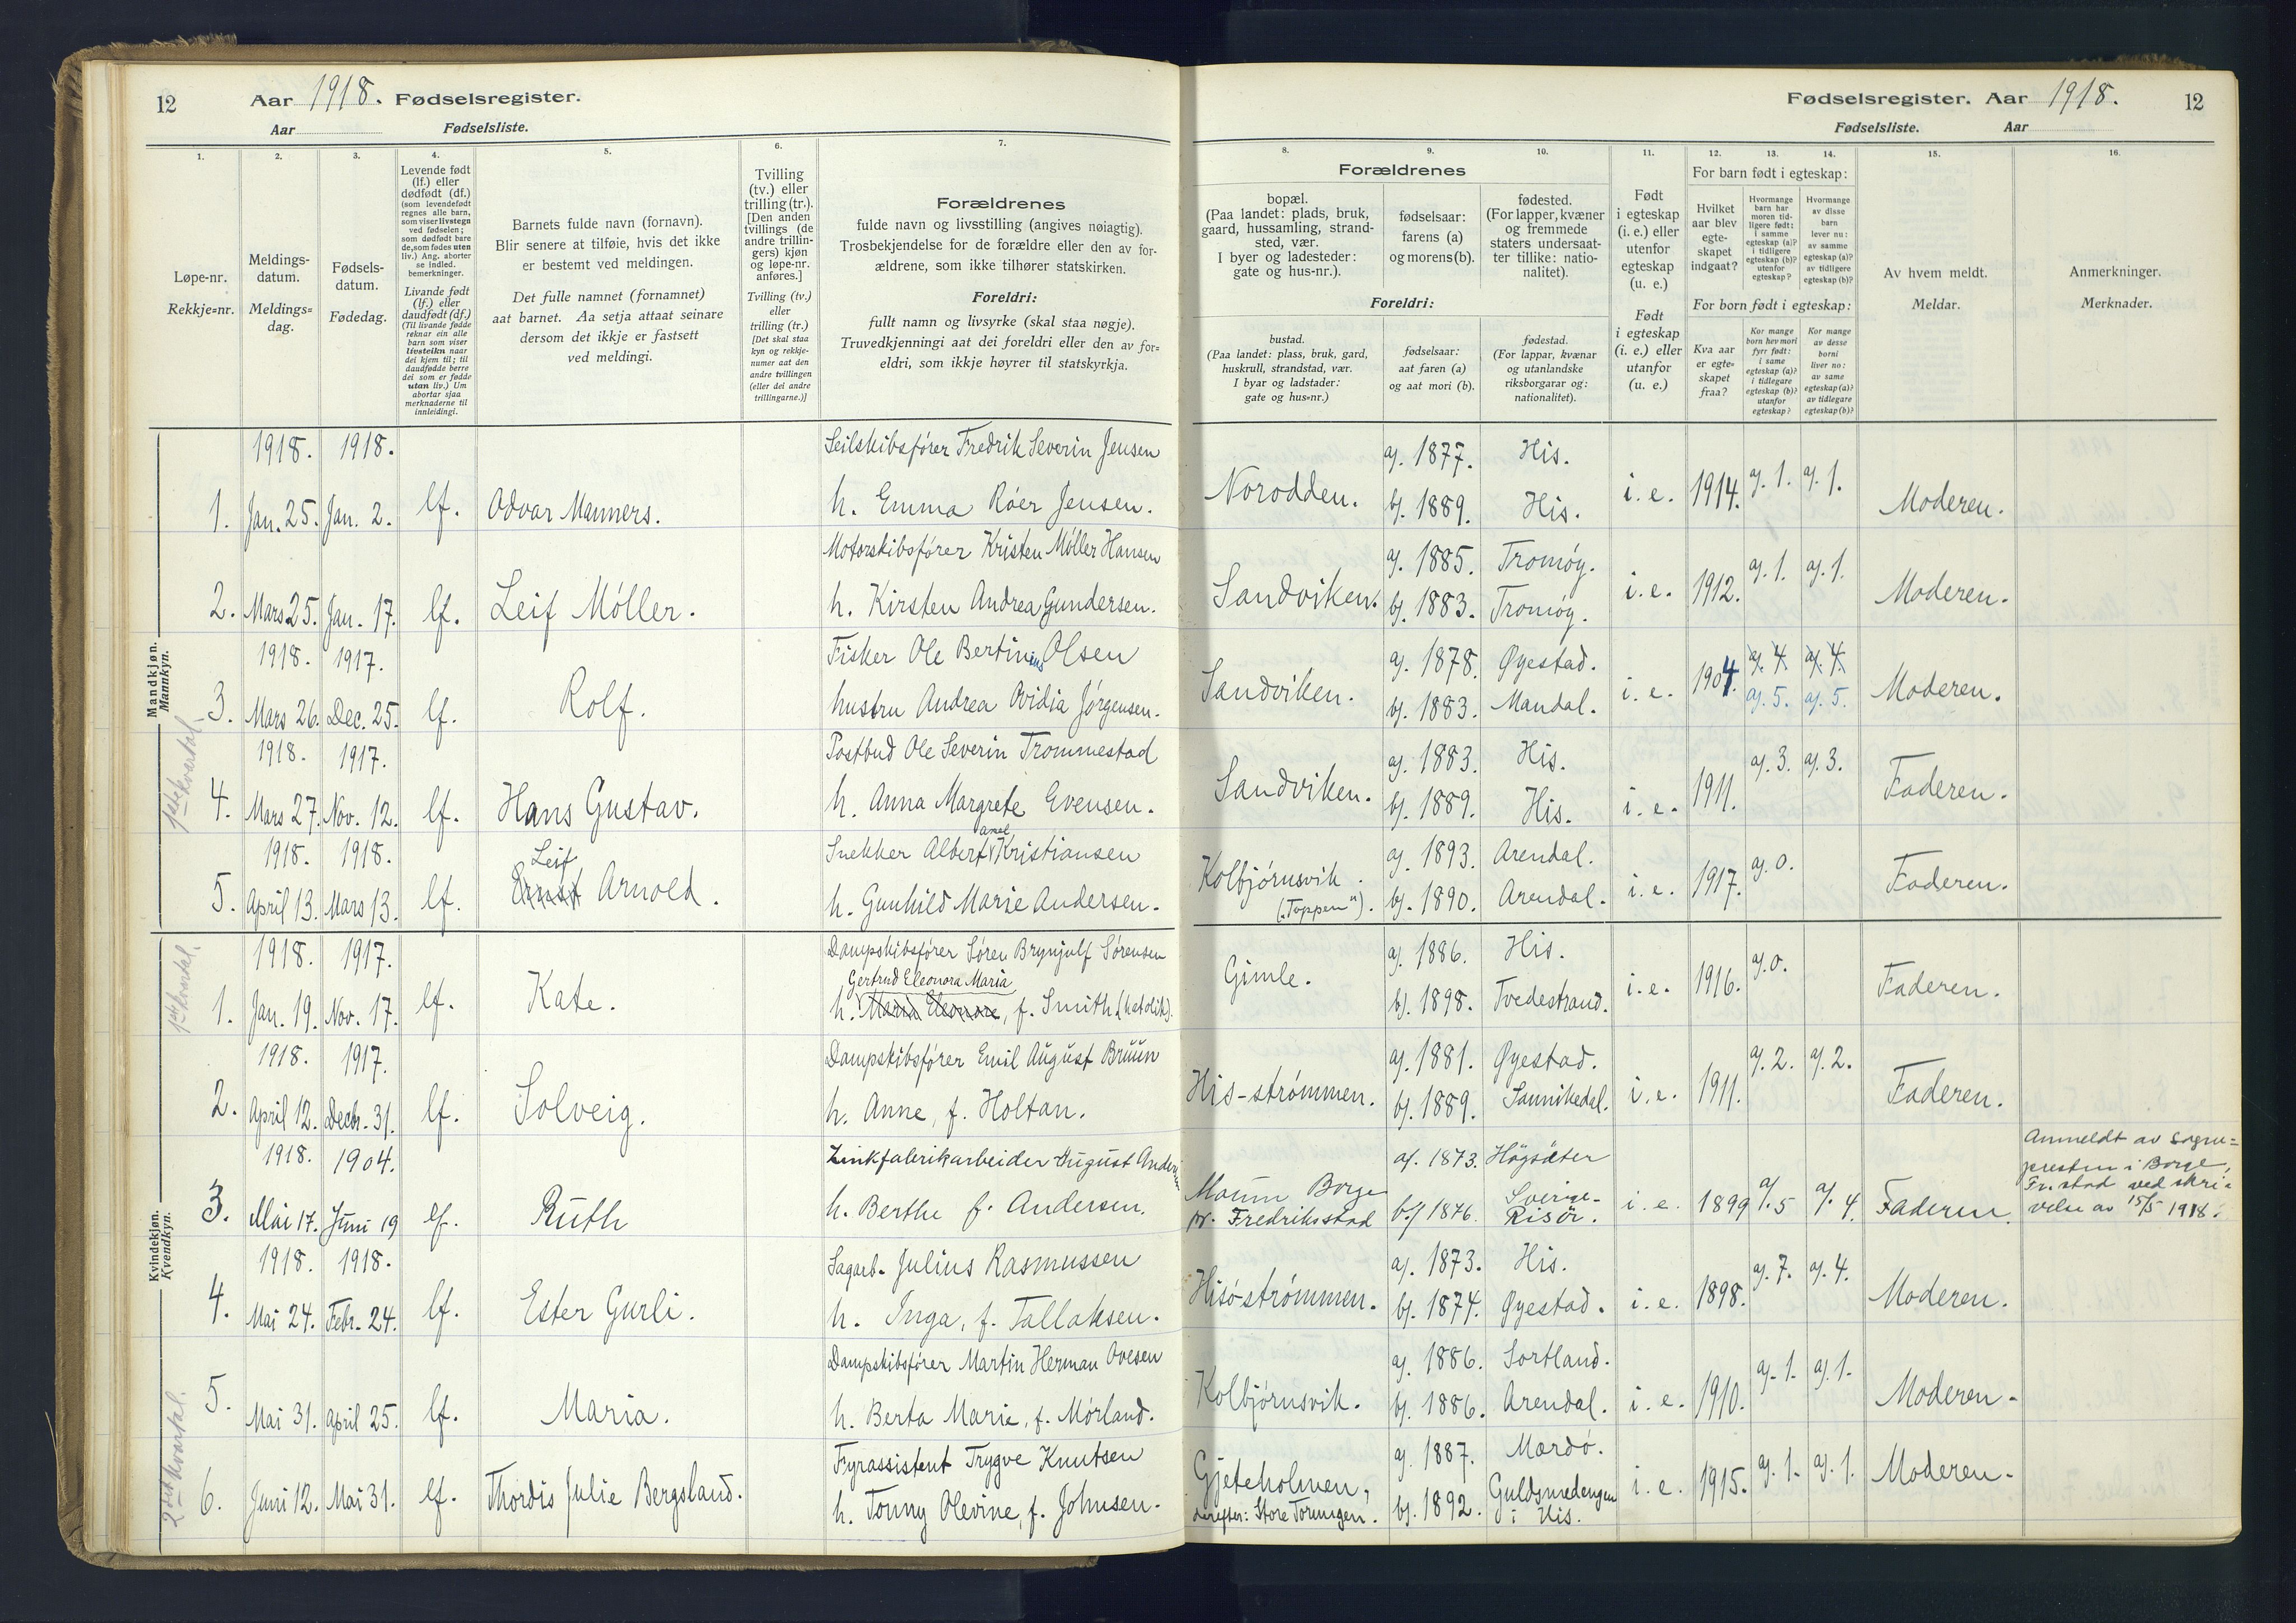 12 Aar 1918. Fødselsregister.
Aar Fødselsliste.
Fødselsregister. Aar 1918. 12
Fødselsliste. Aar
1. 2. 3. 4. 5. 6. 7.
Løpe-nr.
Rekkje=nr.
Meldings-
datum.
Meldings=
dag.
Fødsels-
datum.
Fødedag.
Levende født
(lf.) eller
dødfødt (df.)
(som levendefødt
regnes alle barn,
som viser livstegn
ved fødselen;
som dødfødt bare
de, som fødes uten
liv.) Ang. aborter
se indled.
bemerkninger.
Livande født
(lf.) eller
daudfødt (df.)
(Til livande fødde
reknar ein alle
barn som viser
livsteikn naar
dei kjem til; til
daudfødde berre
dei som er fødde
utan liv.) Um
abortar sjaa
merknaderne til
innleidingi.
Barnets fulde navn (fornavn).
Blir senere at tilføie, hvis det ikke
er bestemt ved meldingen.
Det fulle namnet (fornamnet)
aat barnet. Aa setja attaat seinare
dersom det ikkje er fastsett
ved meldingi.
Tvilling
(tv.) eller
trilling (tr.).
[Den anden
tvillings (de
andre trillin-
gers) kjøn
og løpe-nr.
anføres.]
Tvilling (tv.)
eller
trilling (tr.)
[Det skal staa
kyn og rekkje-
numer aat den
andre tvillingen
(eller dei andre
trillingarne.)]
Forældrenes
fulde navn og livsstilling (angives nøiagtig).
Trosbekjendelse for de forældre eller den av for-
ældrene, som ikke tilhører statskirken.
Foreldri:
fullt namn og livsyrke (skal staa nøgje).
Truvedkjenningi aat dei foreldri eller den av for=
eldri, som ikkje høyrer til statskyrkja.
8. 9. 10. 11. 12. 13. 14. 15. 16.
Forældrenes
bopæl.
(Paa landet: plads, bruk,
gaard, hussamling, strand-
sted, vær.
I byer og ladesteder:
gate og hus-nr.).
fødselsaar:
farens (a)
og morens (b).
fødested.
(For lapper, kvæner
og fremmede
staters undersaat-
ter tillike: natio-
nalitet).
Foreldri:
bustad.
(Paa landet: plass, bruk, gard,
huskrull, strandstad, vær.
I byar og ladstader:
gate og hus=nr.)
fødselsaar:
aat faren (a)
og aat mori (b).
fødestad.
(For lappar, kvænar
og utanlandske
riksborgarar og:
nationalitet).
Født
i egteskap
(i. e.) eller
utenfor
egteskap
(u. e.)
Født
i egteskap
(i. e.) eller
utanfor
(u. e.)
For barn født i egteskap:
Hvilket
aar blev
egte-
skapet
indgaat?
Hvormange
barn har
moren tid-
ligere født:
i samme
egteskap (a)?
i tidligere
egteskap (b)?
utenfor
egteskap?
Hvormange
av disse
barn
lever nu:
av samme
egteskap (a)?
av tidligere
egteskap (b)?
For born født i egteskap:
Kva aar
er egte-
skapet
fraa?
Kor mange
born hev mori
fyrr født:
i same
egteskap (a)?
i tidlegare
egteskap (b)?
utanfor
egteskap?
Kor mange
av desse
borni
liver no:
av same
egteskap (a)?
av tidlegare
egteskap (b)?
Av hvem meldt.
Meldar.
Anmerkninger.
Merknader.
Mandkjøn.
Mannkyn.
1ste kvartal.
1918. 1918. Seilskibsfører Fredrik Severin Jensen a). 1877. His.
1. Jan. 25. Jan. 2. lf. Odvar Manners. h. Emma Røer Jensen. Norodden. b). 1889. His. i. e. 1914. a). 1. a). 1. Moderen.
Motorskibsfører Kristen Møller Hansen a). 1885. Tromøy.
2. Mars 25. Jan. 17. lf. Leif Møller. h. Kirsten Andrea Gundersen. Sandviken. b). 1883. Tromøy. i. e. 1912. a). 1. a). 1. Moderen.
1918. 1917. Fisker Ole Bertinius Olsen a). 1878. Øyestad. a). 4 a). 4
3. Mars 26. Dec. 25. lf. Rolf. hustru Andrea Ovidia Jørgensen. Sandviken. b). 1883. Mandal. i. e. 1904. a). 5. a). 5. Moderen.
1918. 1917. Postbud Ole Severin Trommestad a). 1883. His.
4. Mars 27. Nov. 12. lf. Hans Gustav. h. Anna Margrete Evensen. Sandviken. b). 1889. His. i. e. 1911. a). 3. a). 3. Faderen.
1918. 1918. Leif Snekker Albert Axel Kristiansen a). 1893. Arendal.
5. April 13. Mars 13. lf. Ernst Arnold. h. Gunhild Marie Andersen. Kolbjørnsvik ("Toppen"). b). 1890. Arendal. i. e. 1917. a). 0. Faderen.
Kvindekjøn.
Kvendkyn.
1ste kvartal.
1918. 1917. Dampskibsfører Søren Brynjulf Sørensen a). 1886. His.
Gertrud Eleonora Maria
1. Jan. 19. Nov. 17. lf. Kate. h. Maria Eleonore, f. Smith (katolik). Gimle. b). 1898. Tvedestrand. i. e. 1916. a). 0. Faderen.
1918. 1917. Dampskibsfører Emil August Bruun a). 1881. Øyestad.
2. April 12. Decbr. 31. lf. Solveig. h. Anne, f. Holtan. His-strømmen. b). 1889. Sannikedal. i. e. 1911. a). 2. a). 2. Faderen.
1918. 1904. Zinkfabrikarbeider August Andersen a). 1873. Högsäter Sverige-
3. Mai 17. Juni 19 lf. Ruth h. Berthe f. Andersen. Moum Borge pr. Fredriksstad b). 1876. Risör. i. e. 1899 a). 5 a). 4. Faderen.
Anmeldt av sogne=
presten i Borge,
Fr.stad ved skri-
velse av 15/5 1918.
1918. 1918. Sagarb. Julius Rasmussen a). 1873. His.
4. Mai 24. Febr. 24. lf. Ester Gurli. h. Inga, f. Tallaksen. Hisø-strømmen. b). 1874. Øyestad. i. e. 1898. a). 7. a). 4. Moderen.
2det kvartal.
Dampskibsfører Martin Herman Ovesen a). 1886. Sortland.
5. Mai 31. April 25. lf. Maria. h. Berta Marie, f. Mørland. Kolbjørnsvik. b). 1886. Arendal. i. e. 1910. a). 1. a). 1. Moderen.
Fyrassistent Trygve Knutsen a). 1887. Mærdø.
6. Juni 12. Mai 31. lf. Thordis Julie Bergsland. h. Tonny Olevine, f. Johnsen. Gjeteholmen, derefter: Store Torungen. b). 1892. Guldsmedengen i His. i. e. 1915. a). 1. a). 1. Moderen.